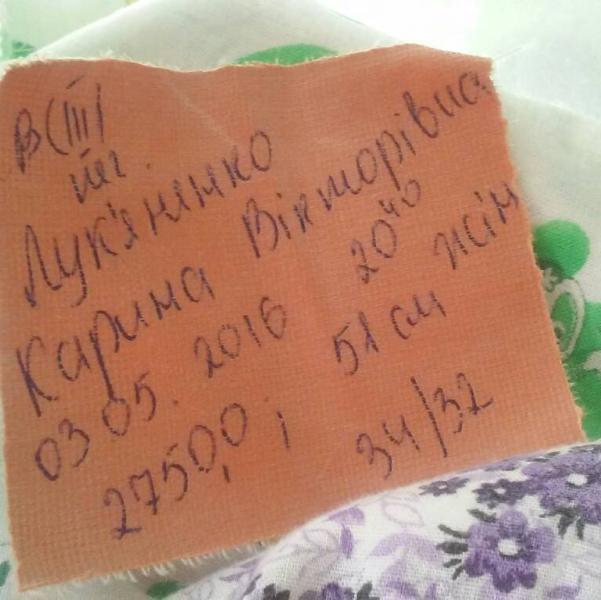 В(III)
Лук'яненко
Карина Вікторівна
03 05. 2016 20⁴⁰ жін
2750,0; 51 см
34/32